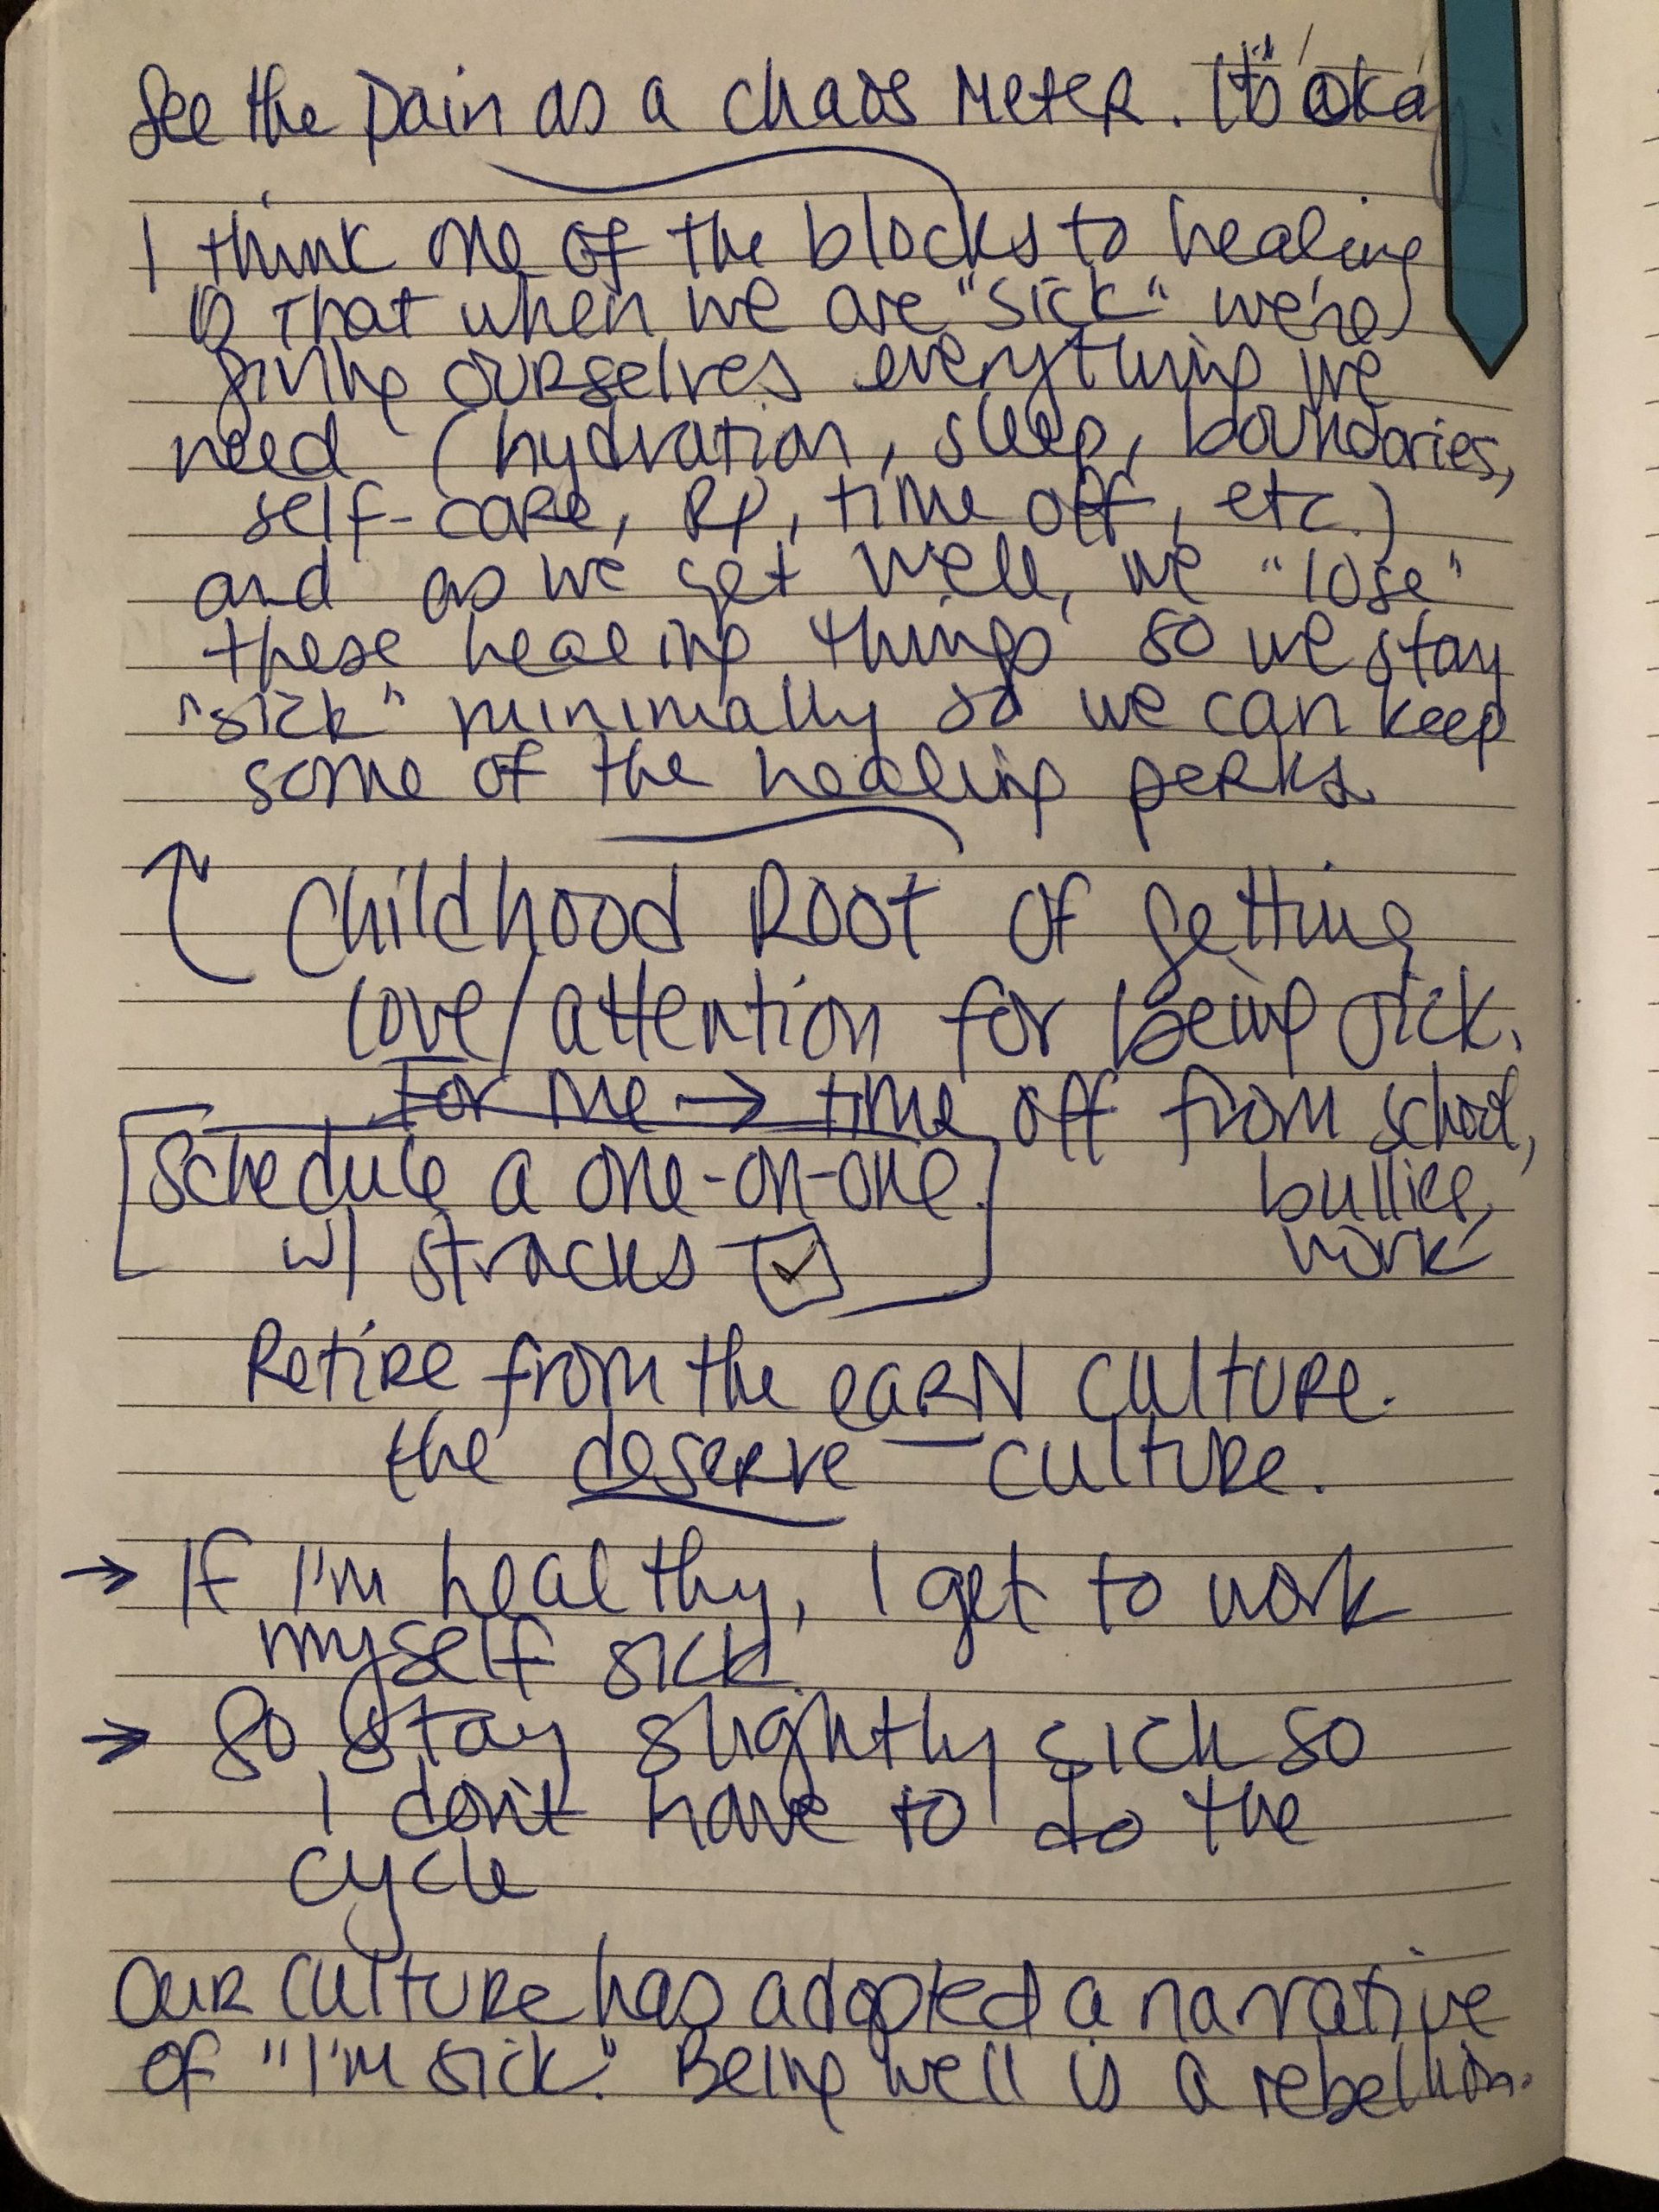 See the pain as a chaos meter. It's okay
I think one of the blocks to healing
is that when we are "sick" we're
giving ourselves everything we
need (hydration, sleep, boundaries,
self-care, Rx, time off, etc.)
and as we get well, we "lose"
these healing things so we stay
"sick" minimally so we can keep
some of the healing perks.
Childhood Root of getting
love/attention for being sick.
For me → time off from school,
bullies,
work
Schedule a one-on-one
w/ Stracks ☑
Retire from the earn culture.
the deserve culture.
→ If I'm healthy, I get to work
myself sick.
→ So stay slightly sick so
I don't have to do the
cycle
Our culture has adopted a narrative
of "I'm sick." Being well is a rebellion.